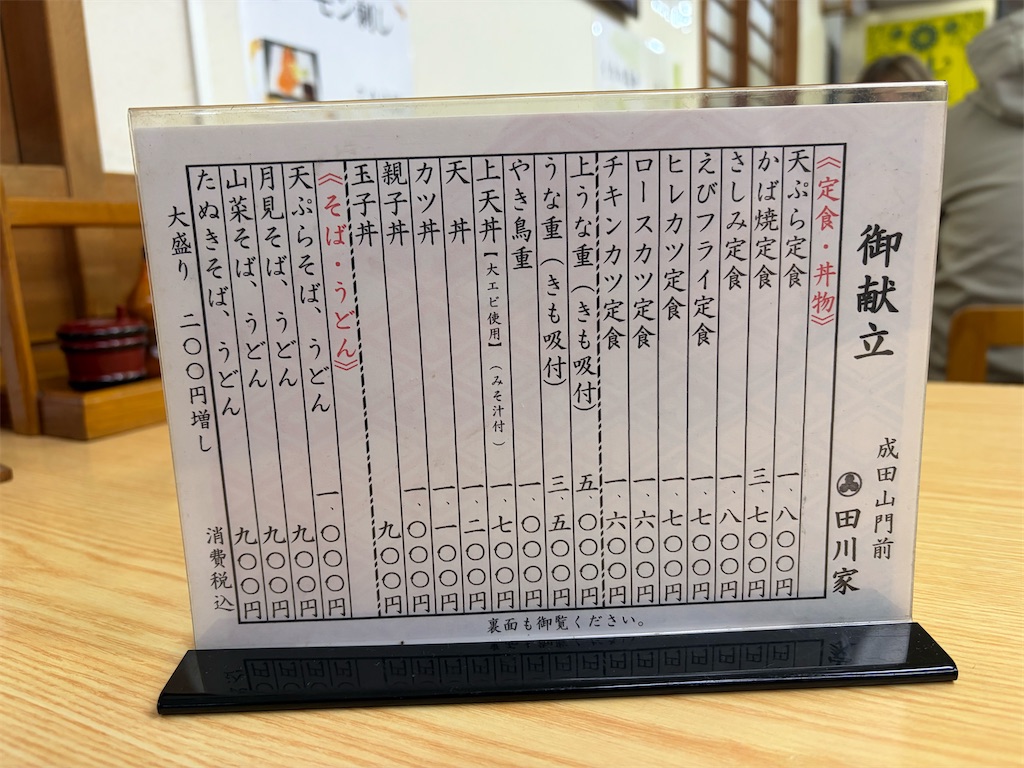 御献立
成田山門前
田川家
《定食・丼物》
天ぷら定食 一、八〇〇円
かば焼定食 三、七〇〇円
さしみ定食 一、八〇〇円
えびフライ定食 一、七〇〇円
ヒレカツ定食 一、七〇〇円
ロースカツ定食 一、六〇〇円
チキンカツ定食 一、六〇〇円
上うな重(きも吸付) 五、〇〇〇円
うな重(きも吸付) 三、五〇〇円
やき鳥重 一、〇〇〇円
上天丼【大エビ使用】(みそ汁付) 一、七〇〇円
天丼 一、二〇〇円
カツ丼 一、一〇〇円
親子丼 一、〇〇〇円
玉子丼 九〇〇円
《そば・うどん》
天ぷらそば、うどん 一、〇〇〇円
月見そば、うどん 九〇〇円
山菜そば、うどん 九〇〇円
たぬきそば、うどん 九〇〇円
大盛り 二〇〇円増し
消費税込
裏面も御覧ください。
モン刺し